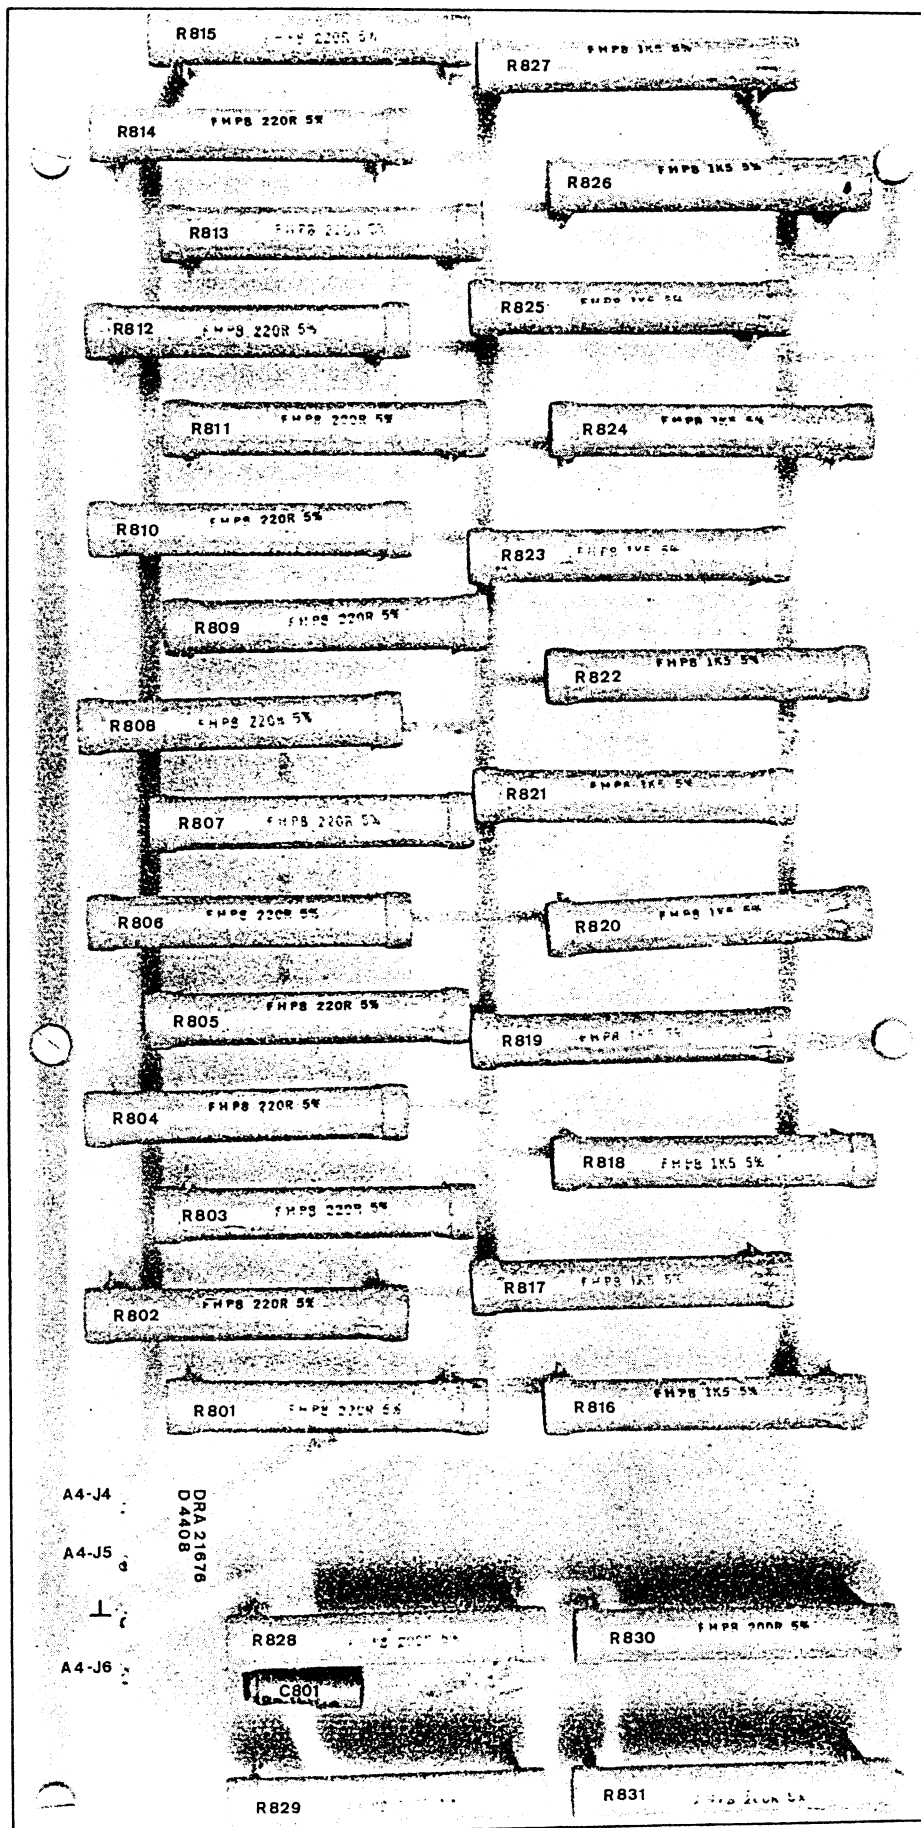 R815 FHP8 220R 5%
R827 FHP8 1K5 5%
R814 FHP8 220R 5%
R826 FHP8 1K5 5%
R813 FHP8 220R 5%
R825 FHP8 1K5 5%
R812 FHP8 220R 5%
R811 FHP8 220R 5%
R824 FHP8 1K5 5%
R810 FHP8 220R 5%
R823 FHP8 1K5 5%
R809 FHP8 220R 5%
R822 FHP8 1K5 5%
R808 FHP8 220R 5%
R821 FHP8 1K5 5%
R807 FHP8 220R 5%
R806 FHP8 220R 5%
R820 FHP8 1K5 5%
R805 FHP8 220R 5%
R819 FHP8 1K5 5%
R804 FHP8 220R 5%
R818 FHP8 1K5 5%
R803 FHP8 220R 5%
R817 FHP8 1K5 5%
R802 FHP8 220R 5%
R801 FHP8 220R 5%
R816 FHP8 1K5 5%
A4-J4
DRA 21676
D 4408
A4-J5
A4-J6
R828 200R 5%
R830 FHP8 200R 5%
C801
R829
R831 200R 5%